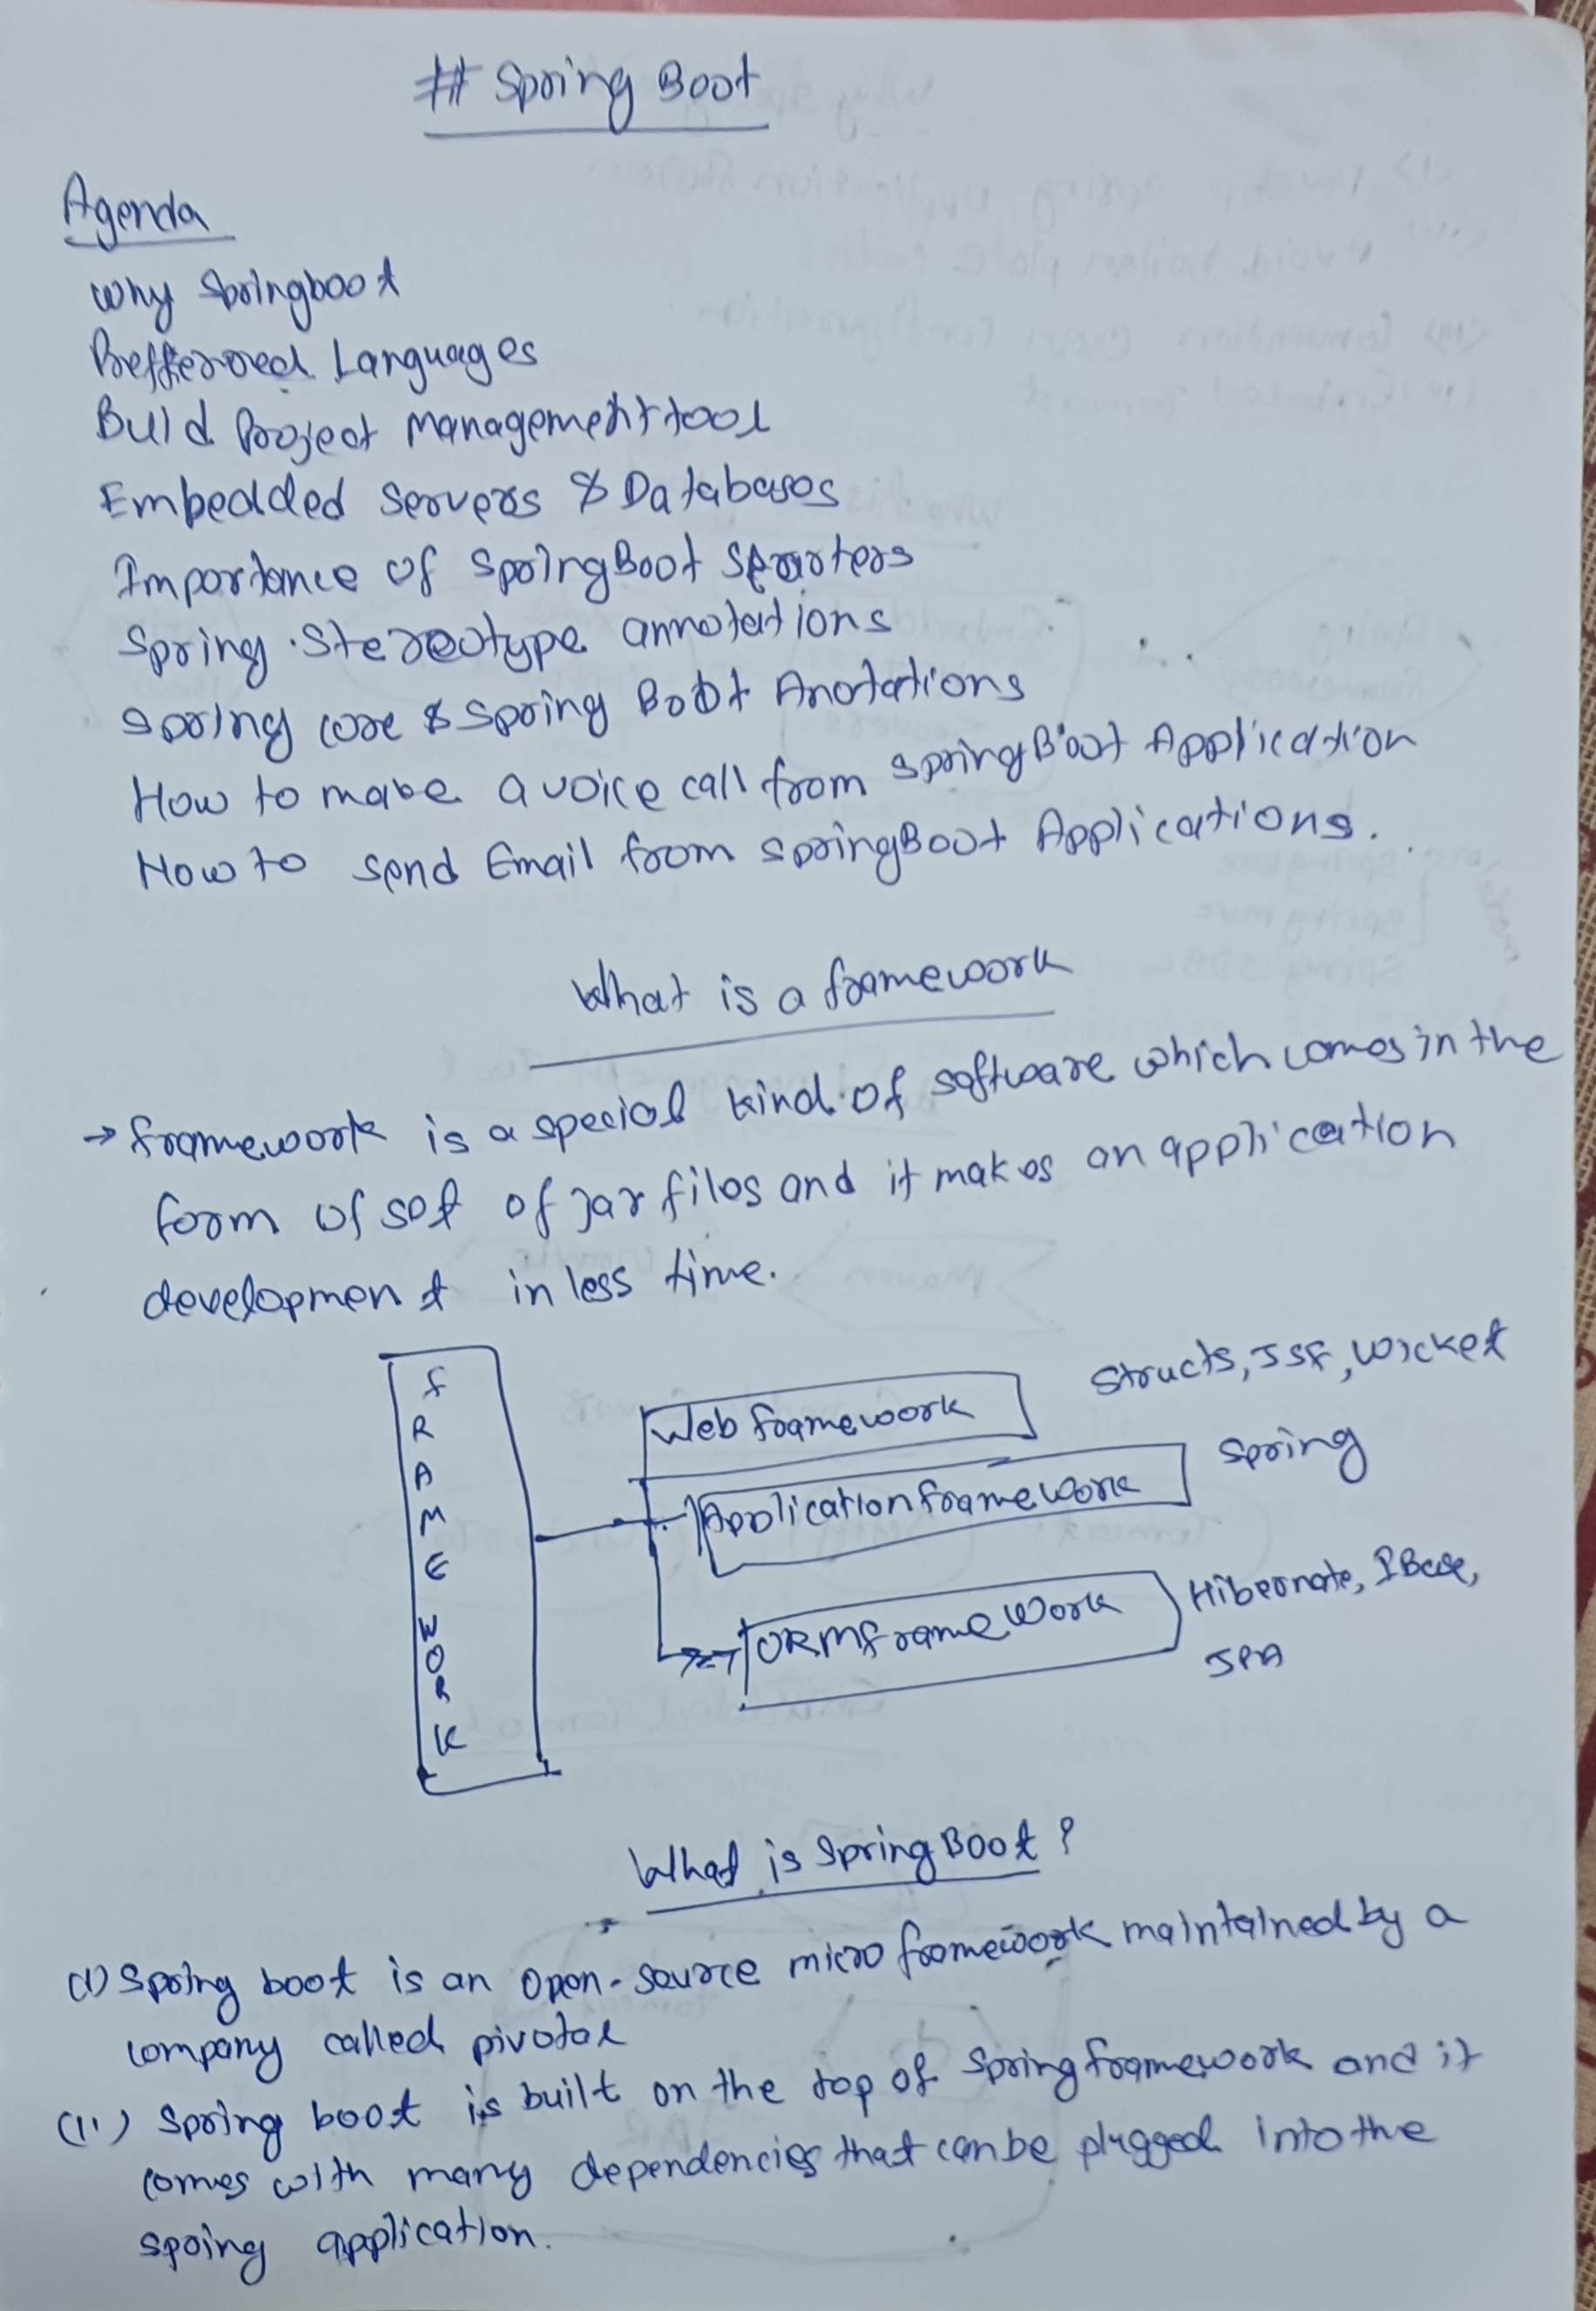 # Spring Boot
Agenda
Why Springboot
Prefferred Languages
Build Project Management tool
Embedded Servers & Databases
Importance of SpringBoot Starters
Spring Stereotype annotations
Spring core & Spring Boot Anotations
How to make a voice call from SpringBoot Application
How to send Email from SpringBoot Applications.
What is a framework
→ framework is a special kind of software which comes in the
form of set of jar files and it makes an application
development in less time.
FRAMEWORK
Web framework
Structs, JSF, Wicket
Application framework
Spring
ORM Framework
Hibernate,
JPA
What is Spring Boot?
(i) Spring boot is an open-source micro framework maintained by a
company called pivotal
(ii) Spring boot is built on the top of spring framework and it
comes with many dependencies that can be plugged into the
spring application.